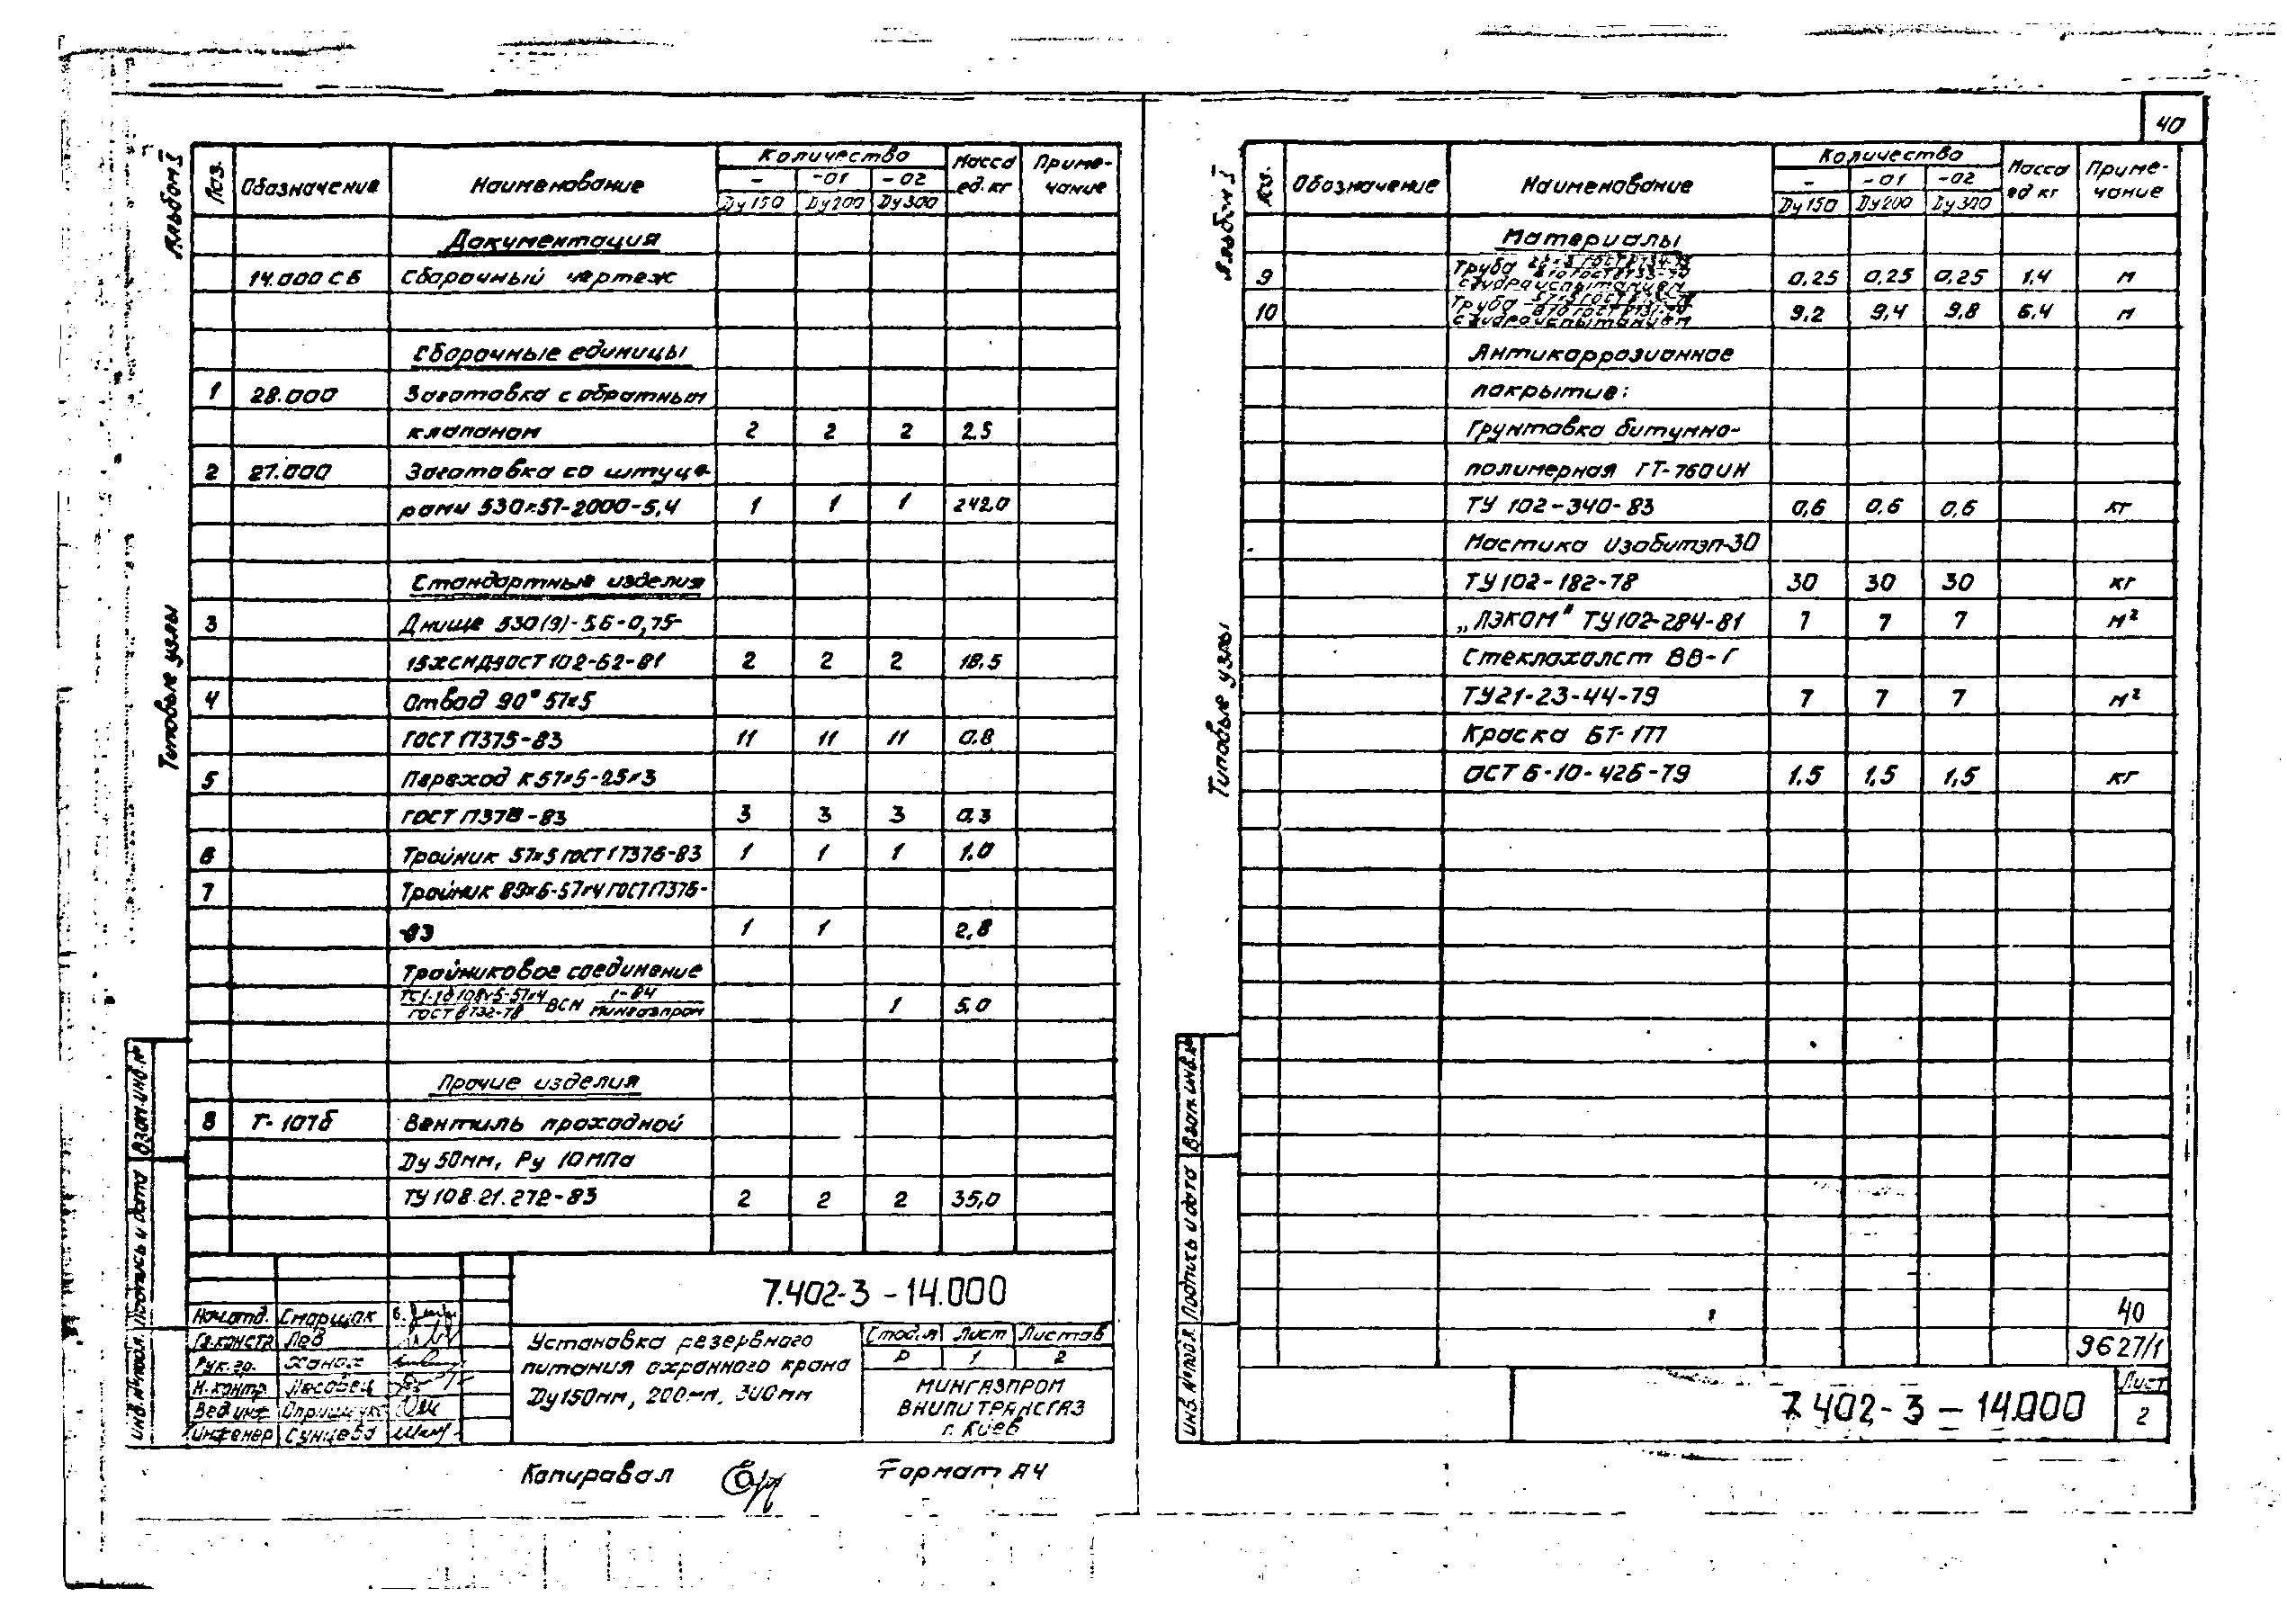 Альбом I
Типовые узлы
Поз.
Обозначение
Наименование
Количество
Масса ед. кг
Приме-чание
- -01 -02
Ду 150 Ду 200 Ду 300
Документация
14.000 СБ Сборочный чертеж
Сборочные единицы
1 28.000 Заготовка с обратным
клапаном 2 2 2 2.5
2 27.000 Заготовка со штуце-
рами 530×57-2000-5,4 1 1 1 242,0
Стандартные изделия
3 Днище 530(9)-5,6-0,75-
15ХСНД ОСТ 102-62-81 2 2 2 18,5
4 Отвод 90° 57×5
ГОСТ 17375-83 11 11 11 0.8
5 Переход К 57×5-25×3
ГОСТ 17378-83 3 3 3 0,3
6 Тройник 57×5 ГОСТ 17376-83 1 1 1 1.0
7 Тройник 89×6-57×4 ГОСТ 17376-
-83 1 1 2,8
Тройниковое соединение
108×5-57×4 ВСН 1-84
ГОСТ 8732-78 Мингазпром 1 5,0
Прочие изделия
8 Т-107б Вентиль проходной
Ду 50мм, Ру 10 МПа
ТУ 108.21.272-83 2 2 2 35,0
Взам.инв.№
Подпись и дата
Инв.№подл.
7.402-3 -14.000
Нач.отд. Сморщак
Гл.констр. Лев
Рук.гр. Ханах
Н.контр. Лясовец
Вед.инж.
Инженер Сунцева
Установка резервного
питания охранного крана
Ду 150мм, 200мм, 300мм
Стадия Лист Листов
Р 1 2
МИНГАЗПРОМ
ВНИПИТРАНСГАЗ
г. Киев
Копировал
Формат А4
40
Альбом I
Типовые узлы
Обозначение
Наименование
Количество
Масса ед кг
Приме-чание
- -01 -02
Ду 150 Ду 200 Ду 300
Материалы
9 Труба
с гидроиспытанием 0,25 0,25 0,25 1,4 м
10 Труба
с гидроиспытанием 9,2 9,4 9,8 6.4 м
Антикоррозионное
покрытие:
Грунтовка битумно-
полимерная ГТ-760ИН
ТУ 102-340-83 0,6 0,6 0,6 кг
Мастика Изобитэп-30
ТУ 102-182-78 30 30 30 кг
„ЛЭКОМ" ТУ102-284-81 7 7 7 м²
Стеклохолст ВВ-Г
ТУ21-23-44-79 7 7 7 м²
Краска БТ-177
ОСТ 6-10-426-79 1.5 1,5 1,5 кг
Взам.инв.№
Подпись и дата
Инв.№подл.
40
9627/1
7.402-3-14.000
Лист
2